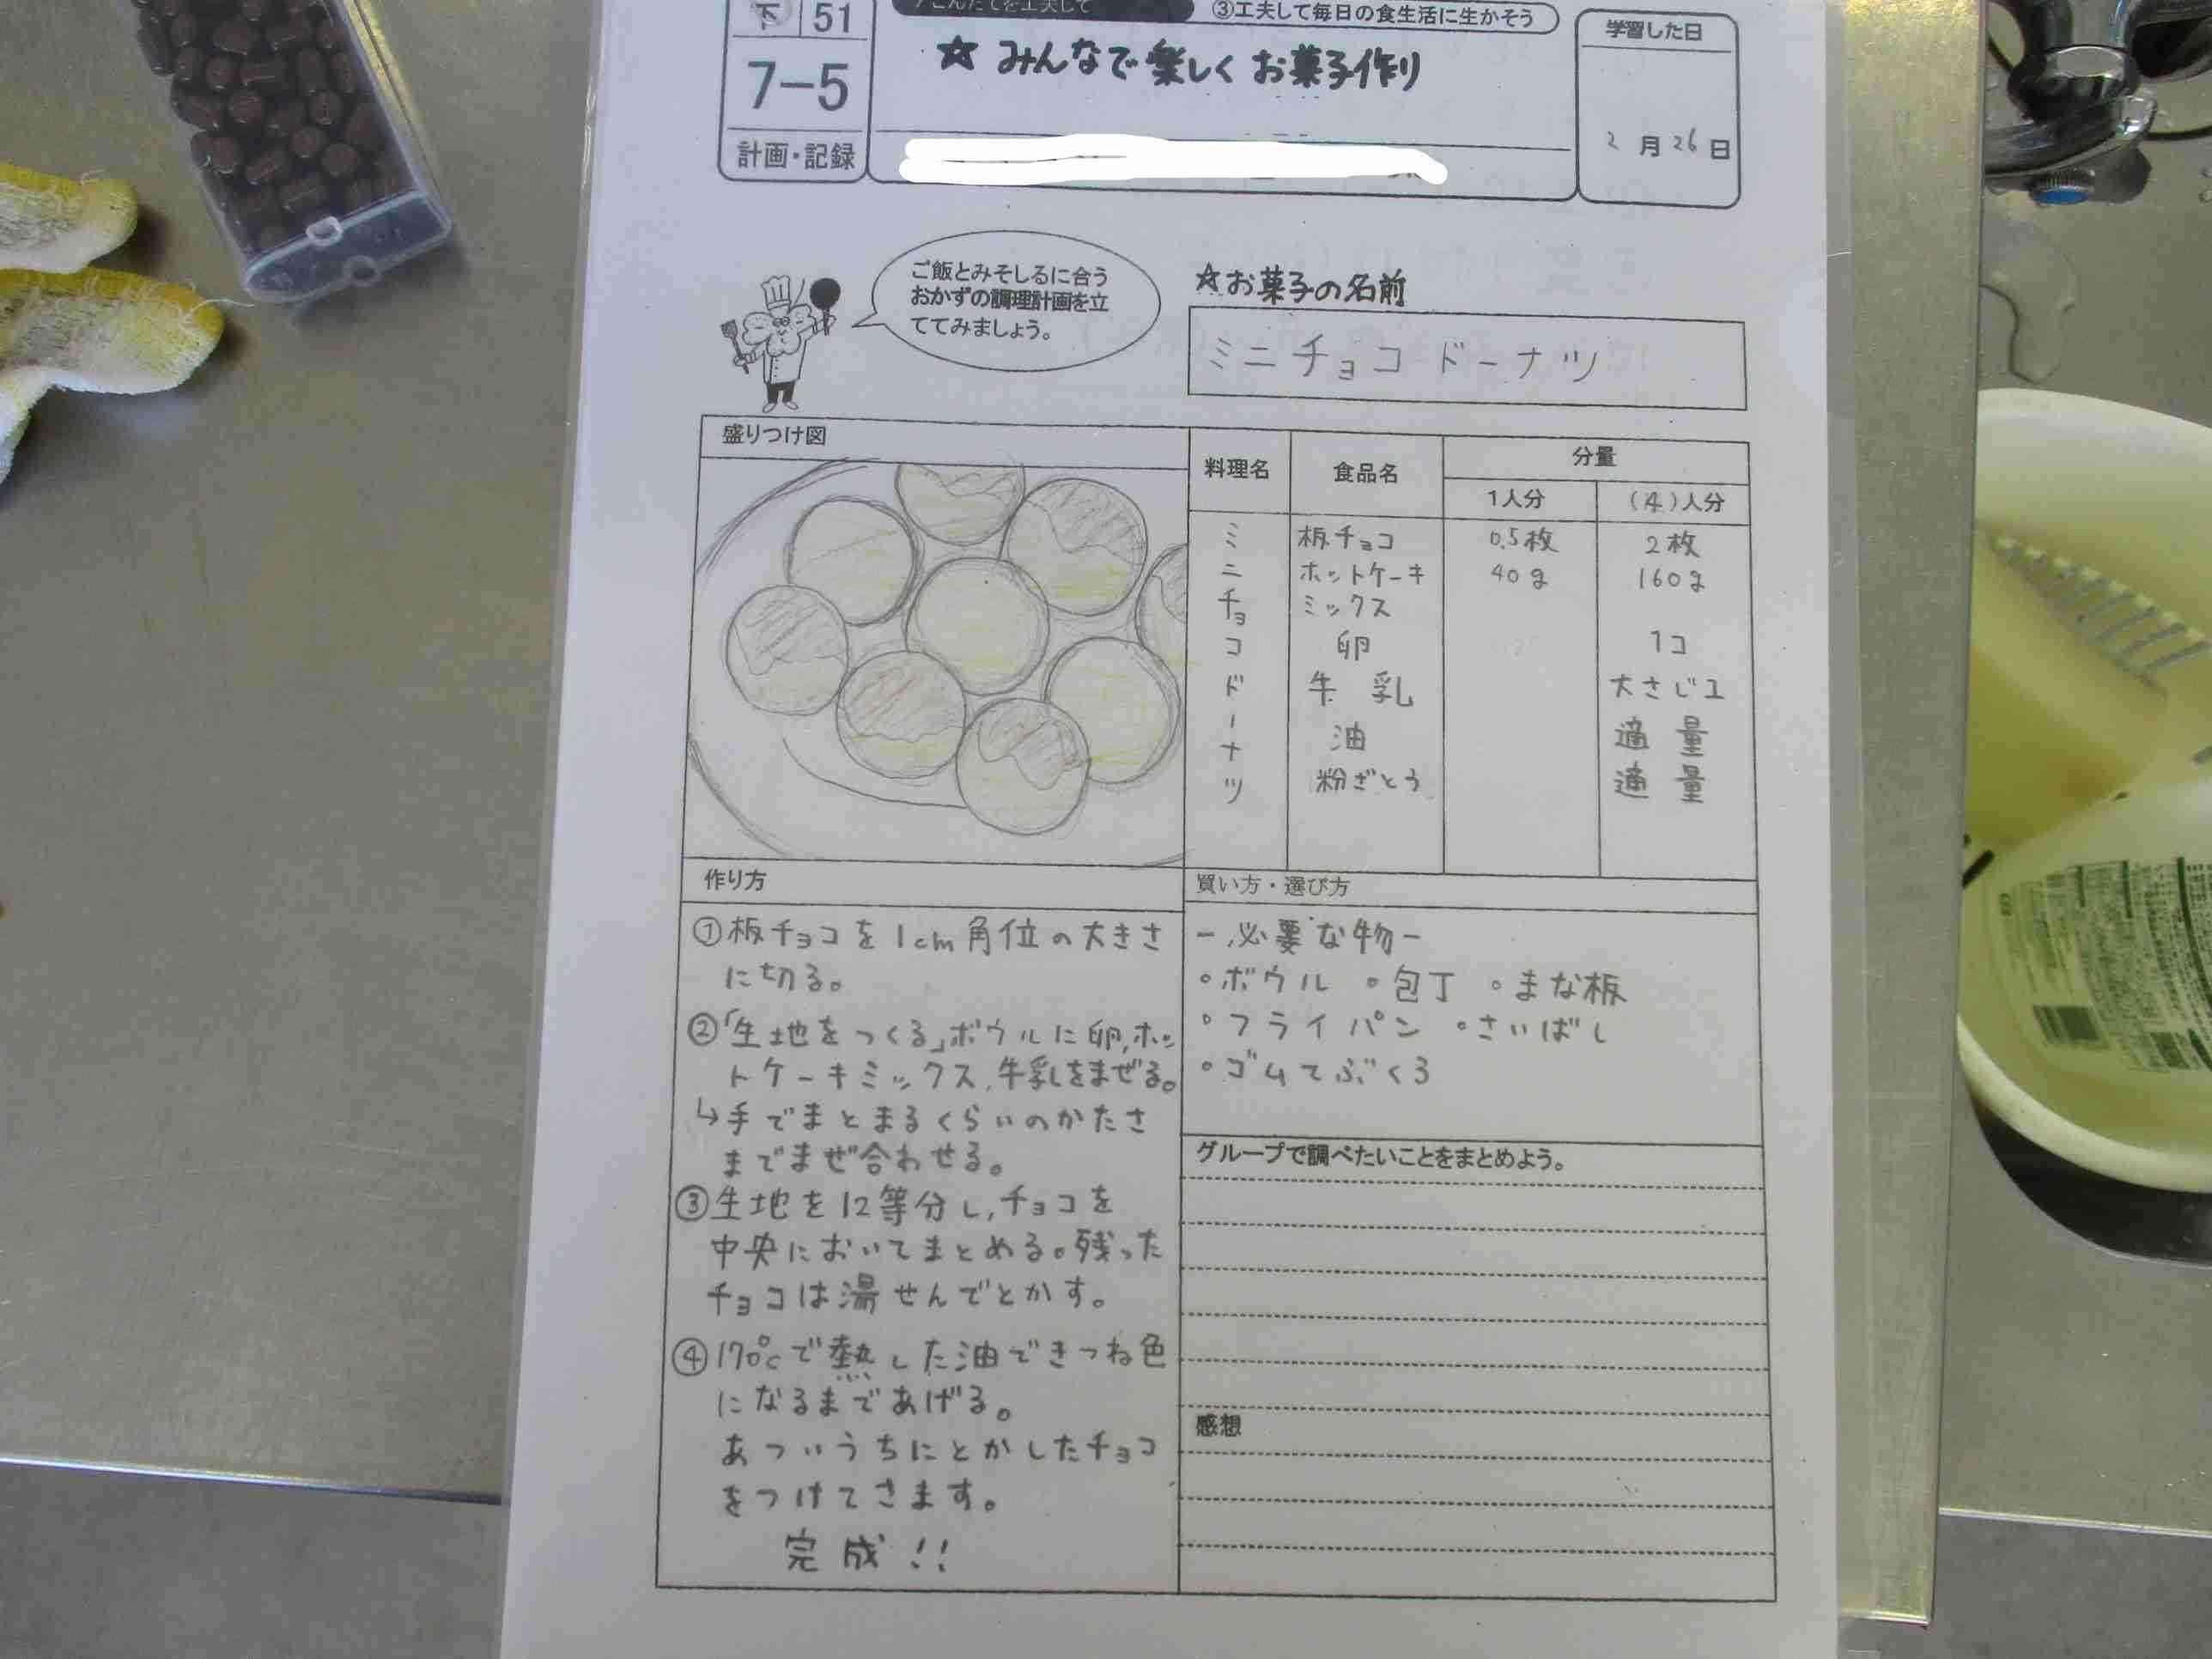 下 51
7-5
計画・記録
③工夫して毎日の食生活に生かそう
☆ みんなで楽しくお菓子作り
学習した日
2月26日
ご飯とみそしるに合う
おかずの調理計画を立
ててみましょう。
☆お菓子の名前
ミニチョコドーナツ
盛りつけ図
料理名
食品名
分量
1人分
(4)人分
ミニチョコドーナツ
板チョコ 0.5枚 2枚
ホットケーキ 40g 160g
ミックス
卵 1コ
牛乳 大さじ1
油 適量
粉ざとう 適量
作り方
①板チョコを1cm角位の大きさ
に切る。
②「生地をつくる」ボウルに卵,ホッ
トケーキミックス,牛乳をまぜる。
↳手でまとまるくらいのかたさ
までまぜ合わせる。
③生地を12等分し,チョコを
中央においてまとめる。残った
チョコは湯せんでとかす。
④170℃で熱した油できつね色
になるまであげる。
あついうちにとかしたチョコ
をつけてさます。
完成!!
買い方・選び方
-必要な物-
・ボウル ・包丁 ・まな板
・フライパン ・さいばし
・ゴムてぶくろ
グループで調べたいことをまとめよう。
感想